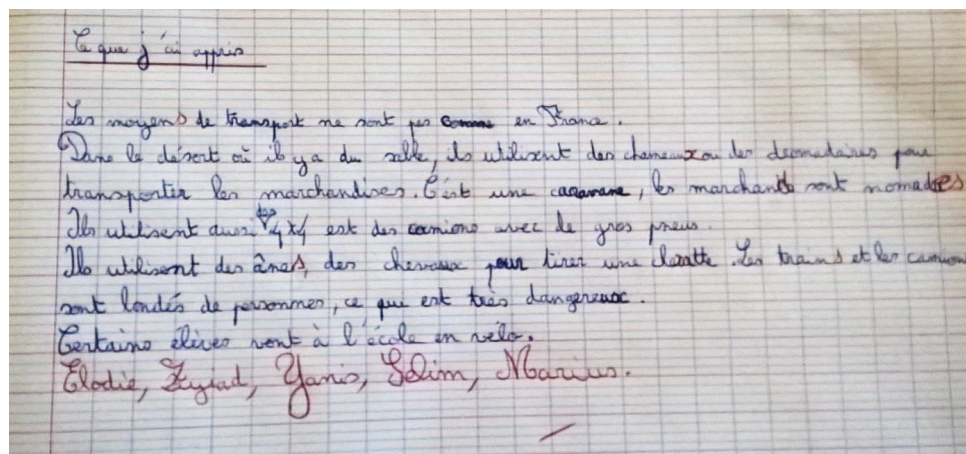 Ce que j'ai appris
Les moyens de transport ne sont pas comme en France.
Dans le désert où il y a du sable, ils utilisent des chameaux ou des dromadaires pour
transporter les marchandises. C'est une caravane, les marchands sont nomades
Ils utilisent aussi des 4x4 est des camions avec de gros pneus.
Ils utilisent des ânes, des chevaux pour tirer une charette. Les trains et les camions
sont bondés de personnes, ce qui est très dangereux.
Certains élèves vont à l'école en vélo.
Elodie, Zyiad, Yanis, Sélim, Marius.